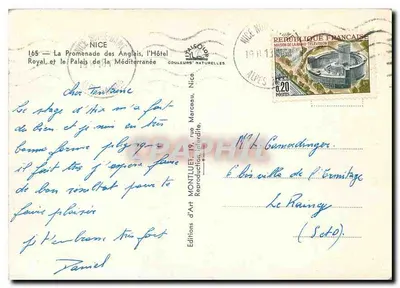 NICE
165 — La Promenade des Anglais, l'Hôtel
Royal et le Palais de la Méditerranée
COULEURS NATURELLES
REPUBLIQUE FRANÇAISE
0,20
POSTES
Le stage d'ski m'a fait
de bien et je suis en très
bonne forme physique
il fait très j'espère faire
de bon résultat pour te
faire plaisir
je t'embrasse très fort
Daniel
Editions d'Art MONTLUET, 19, rue Marceau, Nice
Reproduction interdite.
6 bis villa de l'Ermitage
Le Raincy
(S et O)
PHILAPHIL